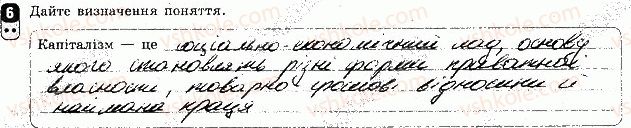 6 Дайте визначення поняття.
Капіталізм — це соціально-економічний лад, основу
якого становлять різні форми приватної
власності, товарно грошові відносини й
наймана праця